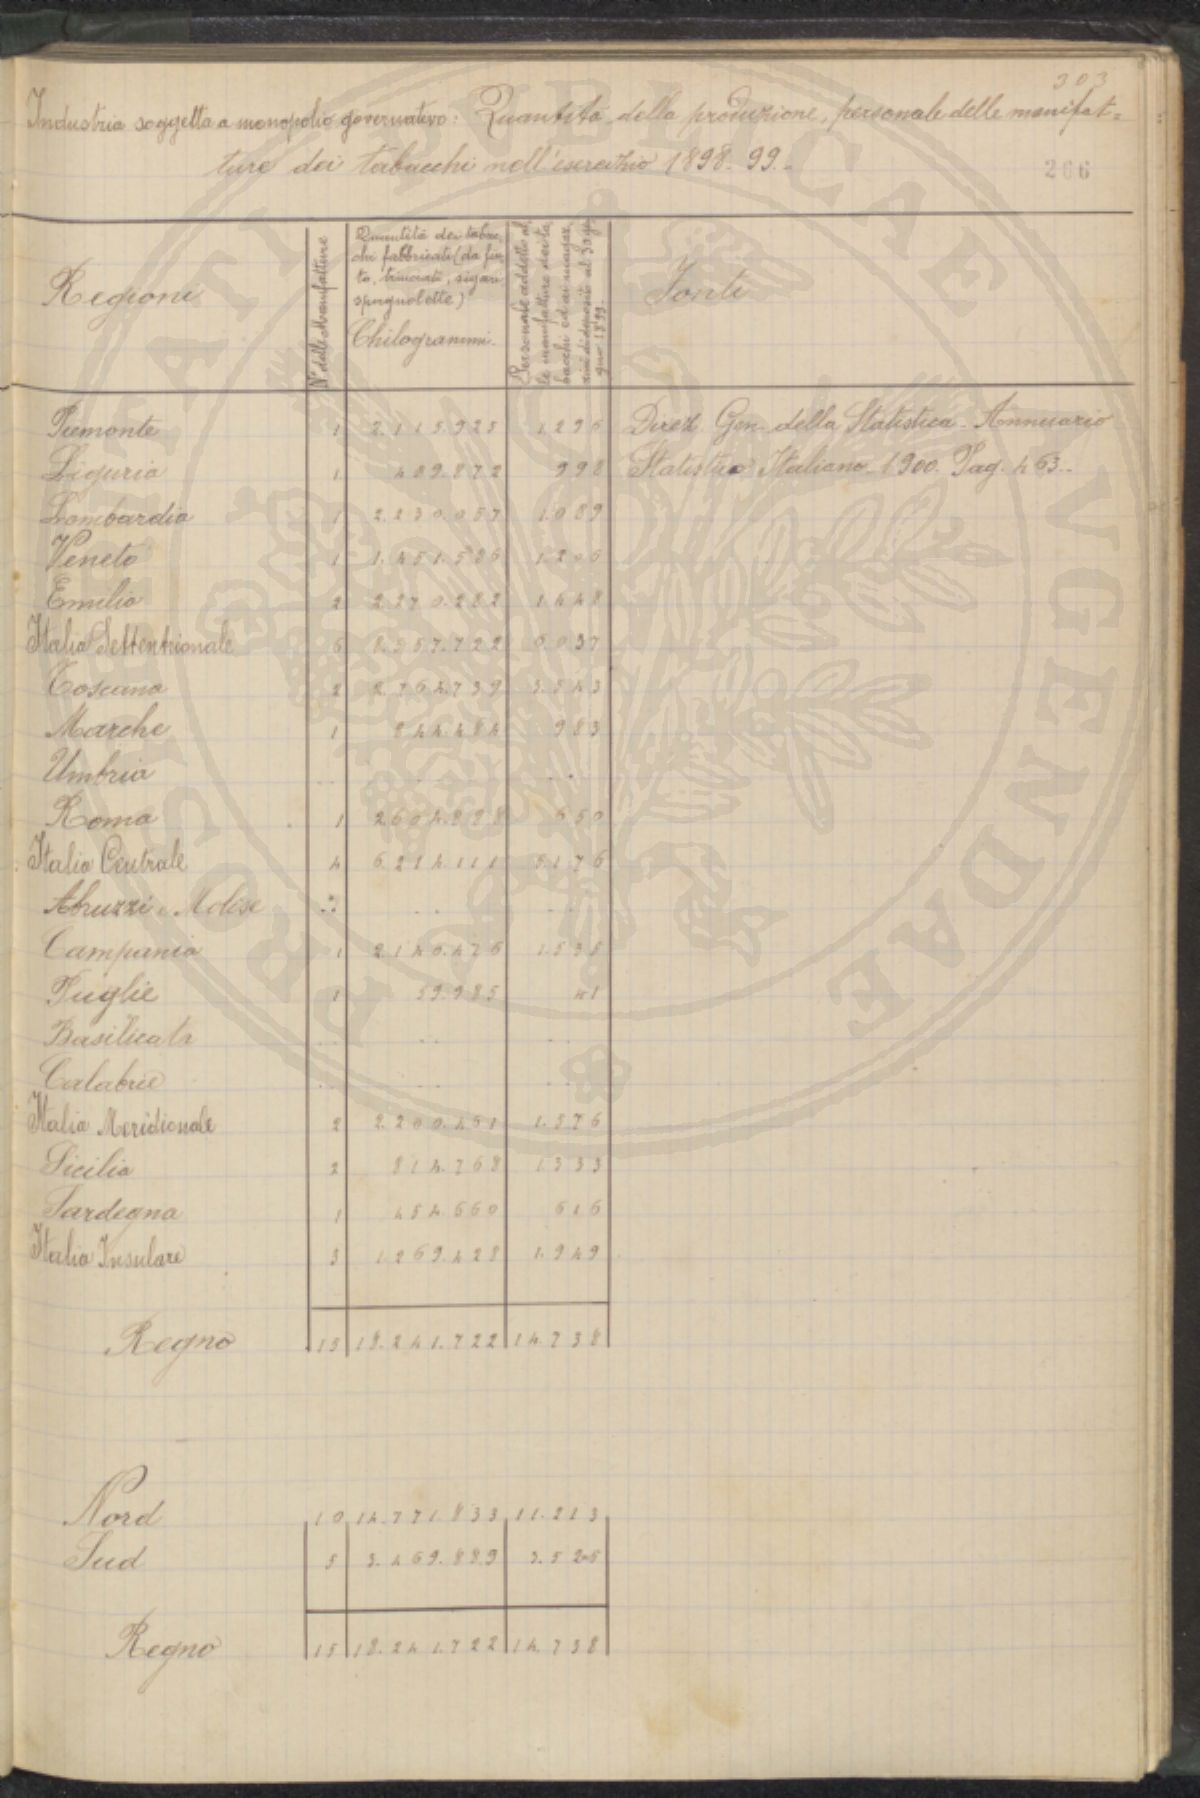 303
Industria soggetta a monopolio governativo: Quantità della produzione, personale delle manifat=
ture dei tabacchi nell'esercizio 1898-99.-
206
Regioni
N. delle Manifatture
Quantità dei tabac
chi fabbricati (da fiu
to, trinciati, sigari
spagnolette)
Chilogrammi.
Personale addetto al
le manifatture dei ta
bacchi ed ai magaz
zini di deposito al 30 giu
gno 1899.
Fonti
Piemonte 1 2.115.925 1.296 Direz. Gen. della Statistica - Annuario
Liguria 1 489.872 998 Statistico Italiano 1900. Pag. 463.-
Lombardia 1 2.230.057 1.089
Veneto 1 1.451.586 1.206
Emilia 2 2.270.282 1.448
Italia Settentrionale 6 8.557.722 6.037
Toscana 2 2.764.739 3.543
Marche 1 844.484 983
Umbria .. .. ..
Roma 1 2.604.888 650
Italia Centrale 4 6.214.111 5.176
Abruzzi e Molise .. .. ..
Campania 1 2.140.476 1.535
Puglie 1 59.985 41
Basilicata .. .. ..
Calabrie .. .. ..
Italia Meridionale 2 2.200.461 1.576
Sicilia 2 814.768 1.333
Sardegna 1 454.660 616
Italia Insulare 3 1.269.428 1.949
Regno 15 18.241.722 14.738
Nord 10 14.771.833 11.213
Sud 5 3.469.889 3.525
Regno 15 18.241.722 14.738